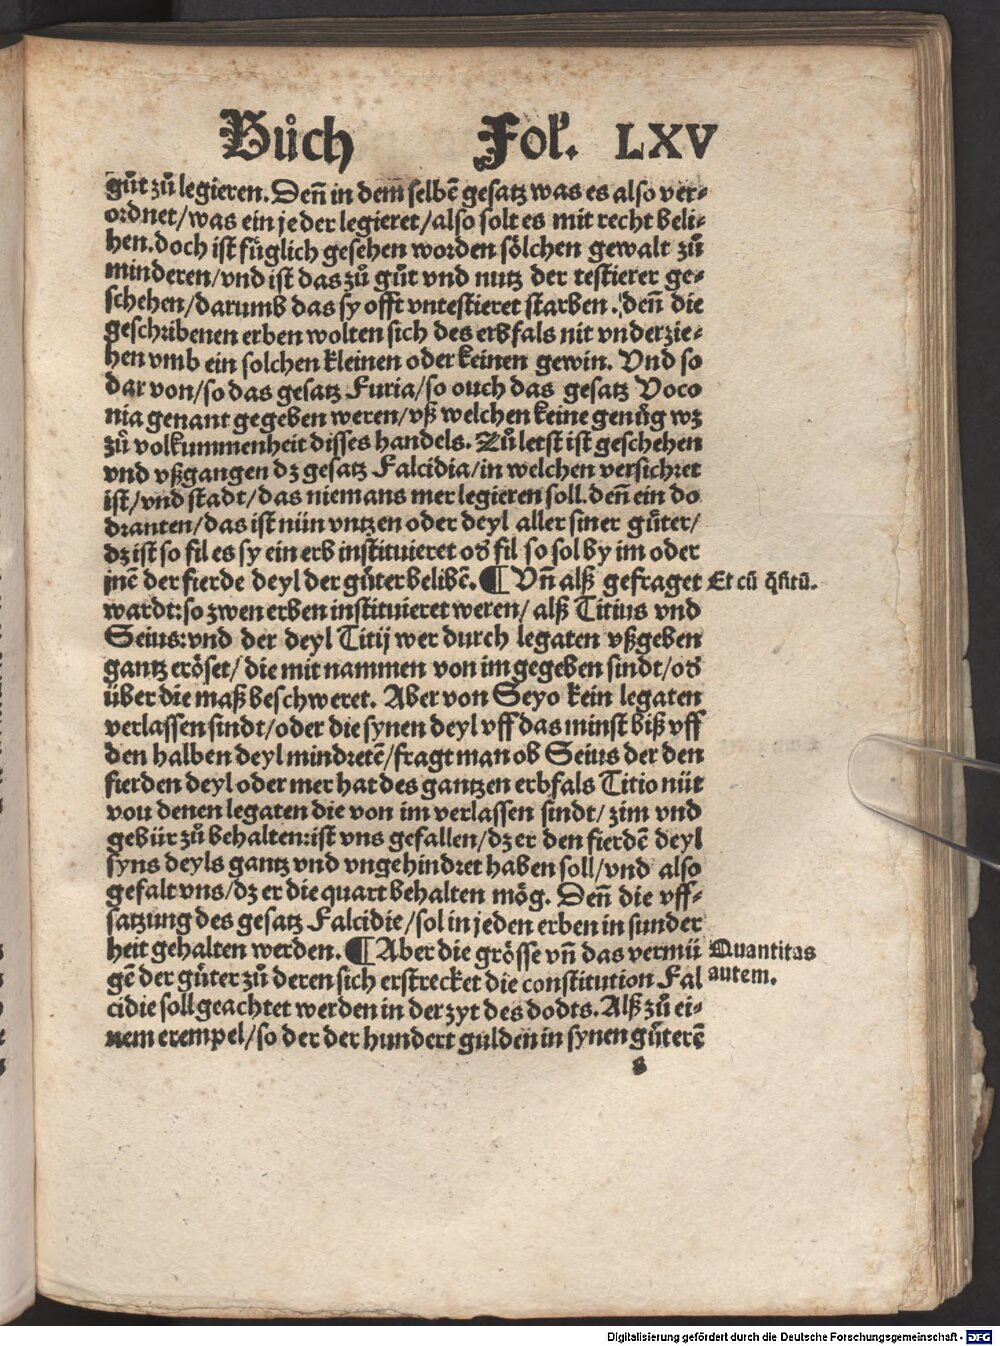 Bůch Fol. LXV
gůt zů legieren. Deñ in dem selbẽ gesatz was es also ver⸗
ordnet/was ein jeder legieret/also solt es mit recht beli⸗
hen. doch ist fůglich gesehen worden sölchen gewalt zů
minderen/vnd ist das zů gůt vnd nutz der testierer ge⸗
schehen/darumb das sy offt vntestieret starben. deñ die
geschribenen erben wolten sich des erbfals nit vnderzie⸗
hen vmb ein solchen kleinen oder keinen gewin. Vnd so
dar von/so das gesatz Furia/so ouch das gesatz Voco
nia genant gegeben weren/vß welchen keine genůg wz
zů volkummenheit disses handels. Zů letst ist geschehen
vnd vßgangen dz gesatz Falcidia/in welchen versichret
ist/vnd stadt/das niemans mer legieren soll. deñ ein do
dranten/das ist nün vntzen oder deyl aller siner gůter/
dz ist so fil es sy ein erb instituieret od̕ fil so sol by im oder
jnẽ der fierde deyl der gůter belibẽ. ¶ Vñ alß gefraget
Et cũ q̃sitũ.
wardt: so zwen erben instituieret weren/ alß Titius vnd
Seius: vnd der deyl Titij wer durch legaten vßgeben
gantz eröset/ die mit nammen von im gegeben sindt/od̕
über die maß beschweret. Aber von Seyo kein legaten
verlassen sindt/oder die synen deyl vff das minst biß vff
den halben deyl mindretẽ/fragt man ob Seius der den
fierden deyl oder mer hat des gantzen erbfals Titio nüt
vou denen legaten die von im verlassen sindt/ zim vnd
gebür zů behalten: ist vns gefallen/dz er den fierdẽ deyl
syns deyls gantz vnd vngehindret haben soll/vnd also
gefalt vns/dz er die quart behalten mög. Deñ die vff⸗
satzung des gesatz Falcidie/sol in jeden erben in sunder
heit gehalten werden. ¶ Aber die grösse vñ das vermü
Quantitas
gẽ der gůter zů deren sich erstrecket die constitution Fal
autem.
cidie soll geachtet werden in der zyt des dodts. Alß zů ei⸗
nem exempel/so der der hundert gulden in synen gůterẽ
Digitalisierung gefördert durch die Deutsche Forschungsgemeinschaft - DFG